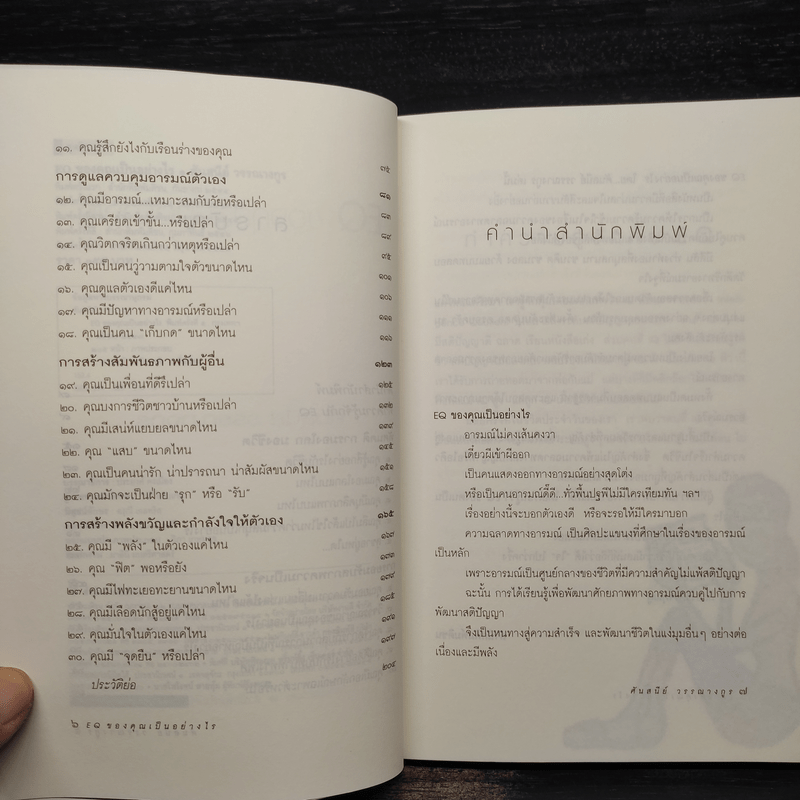 ๑๑. คุณรู้สึกยังไงกับเรือนร่างของคุณ ๗๕
การดูแลควบคุมอารมณ์ตัวเอง ๘๑
๑๒. คุณมีอารมณ์...เหมาะสมกับวัยหรือเปล่า ๘๓
๑๓. คุณเครียดเข้าขั้น...หรือเปล่า ๘๙
๑๔. คุณวิตกจริตเกินกว่าเหตุหรือเปล่า ๙๕
๑๕. คุณเป็นคนวู่วามตามใจตัวขนาดไหน ๑๐๑
๑๖. คุณดูแลตัวเองดีแค่ไหน ๑๐๖
๑๗. คุณมีปัญหาทางอารมณ์หรือเปล่า ๑๑๑
๑๘. คุณเป็นคน "เก็บกด" ขนาดไหน ๑๑๖
การสร้างสัมพันธภาพกับผู้อื่น ๑๒๓
๑๙. คุณเป็นเพื่อนที่ดีรึเปล่า ๑๒๕
๒๐. คุณบงการชีวิตชาวบ้านหรือเปล่า ๑๓๒
๒๑. คุณมีเสน่ห์แยบยลขนาดไหน ๑๓๙
๒๒. คุณ "แสบ" ขนาดไหน ๑๔๕
๒๓. คุณเป็นคนน่ารัก น่าปรารถนา น่าสัมผัสขนาดไหน ๑๕๑
๒๔. คุณมักจะเป็นฝ่าย "รุก" หรือ "รับ" ๑๕๘
การสร้างพลังขวัญและกำลังใจให้ตัวเอง ๑๖๕
๒๕. คุณมี "พลัง" ในตัวเองแค่ไหน ๑๖๗
๒๖. คุณ "ฟิต" พอหรือยัง ๑๗๓
๒๗. คุณมีไฟทะเยอทะยานขนาดไหน ๑๗๙
๒๘. คุณมีเลือดนักสู้อยู่แค่ไหน ๑๘๕
๒๙. คุณมั่นใจในตัวเองแค่ไหน ๑๙๑
๓๐. คุณมี "จุดยืน" หรือเปล่า ๑๙๗
ประวัติย่อ ๒๐๔
๖ EQ ของคุณเป็นอย่างไร
คำนำสำนักพิมพ์
EQ ของคุณเป็นอย่างไร
อารมณ์ไม่คงเส้นคงวา
เดี๋ยวผีเข้าผีออก
เป็นคนแสดงออกทางอารมณ์อย่างสุดโต่ง
หรือเป็นคนอารมณ์ดี๊ดี...ทั่วพื้นปฐพีไม่มีใครเทียมทัน ฯลฯ
เรื่องอย่างนี้จะบอกตัวเองดี หรือจะรอให้ใครมาบอก
ความฉลาดทางอารมณ์ เป็นศิลปะแขนงที่ศึกษาในเรื่องของอารมณ์
เป็นหลัก
เพราะอารมณ์เป็นศูนย์กลางของชีวิตที่มีความสำคัญไม่แพ้สติปัญญา
ฉะนั้น การได้เรียนรู้เพื่อพัฒนาศักยภาพทางอารมณ์ควบคู่ไปกับการ
พัฒนาสติปัญญา
จึงเป็นหนทางสู่ความสำเร็จ และพัฒนาชีวิตในแง่มุมอื่นๆ อย่างต่อ
เนื่องและมีพลัง
ศันสนีย์ วรรณางกูร ๗